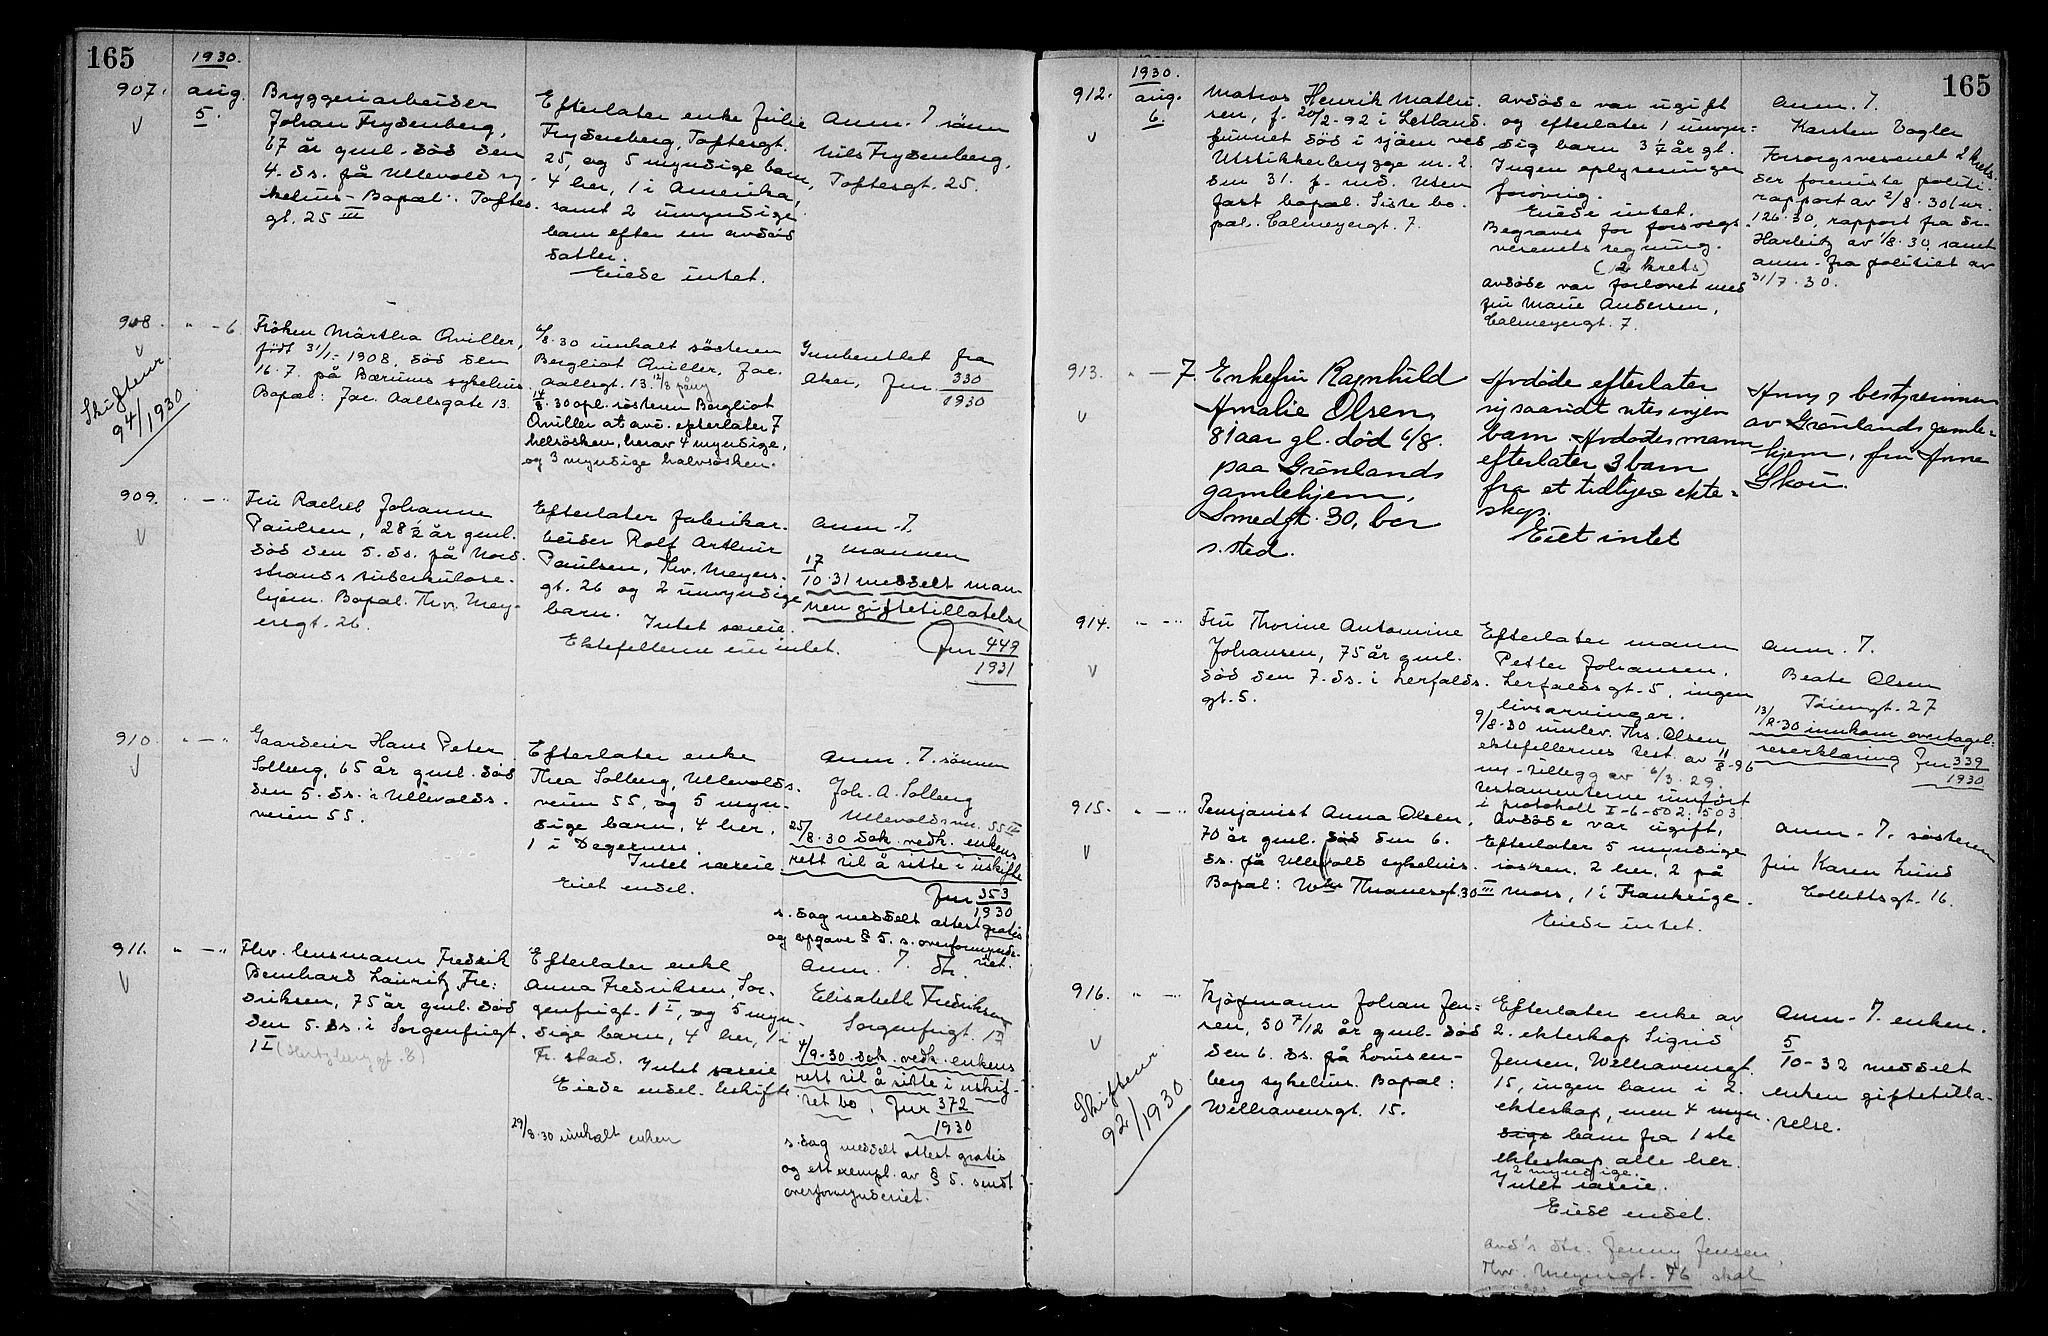 165
1930.
907.
aug.
5.
Bryggeriarbeider
Johan Frydenberg,
67 år gml. død den
4. ds. på Ullevold sy-
kehus - Bopæl: Toftes-
gt. 25 III
Efterlater enke Julie
Frydenberg, Toftesgt.
25, og 5 myndige barn,
4 her, 1 i Amerika,
samt 2 umyndige
barn efter en avdød
datter.
Eiede intet.
Anm. 7 sönn
Nils Frydenberg,
Toftesgt. 25.
908.
" - 6
Skiftenr.
94/1930
Fröken Märtha Qviller,
födt 31/1-1908, död den
16.7. på Bærums sykehus.
Bopæl: Jac. Aallsgate 13.
6/8.30 innkalt søsteren
Bergliot Qviller, Jac.
Aallsgt. 13. 12/8 påny
14/8.30 opl. søsteren Bergliot
Qviller at avd. efterlater 7
helsösken, herav 4 myndige,
og 3 myndige halvsösken.
Innberettet fra
Aker, Jnr. 330
1930
909.
" — "
Fru Rachel Johanne
Paulsen, 28 1/2 år gml.
död den 5. ds. på Nord-
strands tuberkulose-
hjem. Bopæl. Thv. Mey-
ersgt. 26.
Efterlater fabrikar-
beider Rolf Arthur
Paulsen, Thv. Meyers-
gt. 26 og 2 umyndige
barn.
Intet særeie.
Ektefellerne eier intet.
Anm. 7.
mannen
17
10.31 meddelt man-
nen giftetillatelse
Jnr 449
1931
910.
" — "
Gaardeier Hans Peter
Solberg, 65 år gml. död
den 5. ds. i Ullevolds-
veien 55.
Efterlater enke
Thea Solberg, Ullevolds-
veien 55, og 5 myn-
dige barn, 4 her,
1 i Degernes.
Intet særeie
Eiet endel.
Anm. 7. sönnen
Joh. A. Solberg
Ullevoldsvn. 55 II
25/8.30 dok. vedk. enkens
rett til å sitte i uskifte
Jnr 353
1930
s. dag meddelt attest gratis
og opgave § 5. s. overformynde-
riet.
911.
" — "
Fhv. lensmann Fredrik
Bernhard Lauritz Fre-
driksen, 75 år gml. död
den 5. ds. i Sorgenfrigt.
1 I (Hertzberggt. 8)
Efterlater enke
Anna Fredriksen, Sor-
genfrigt. 1 I, og 5 myn-
dige barn, 4 her, 1 i
Fr. stad.
Intet særeie
Eiede endel. Uskifte
29/8.30 innkalt enken
Anm. 7. dtr.
Elisabeth Fredriksen
Sorgenfrigt. 1 I
4/9.30 dok. vedk. enkens
rett til å sitte i uskif-
tet bo, Jnr 372
1930
s. dag meddelt attest gratis
og ett exempl. av § 5. sendt
overformynderiet.
165
1930.
912.
aug.
6.
Matros Henrik Mathi-
sen, f. 20/2-92 i Letland.
funnet död i sjöen ved
Utstikkerbrygge nr. 2
den 31. f. md. Uten
fast bopæl. Siste bo-
pæl. Calmeyergt. 7.
Avdöde var ugift
og efterlater 1 umyn-
dig barn 3 1/2 år gl.
Ingen oplysninger
forövrig.
Eiede intet.
Begraves for forsorgs-
vesenets regning.
(2 krets)
Avdöde var forlovet med
fru Marie Andersen,
Calmeyergt. 7.
Anm. 7.
Karsten Vogler
Forsorgsvesenet 2 krets.
der foreviste politi-
rapport av 2/8.30 Lnr.
126.30, rapport fra dr.
Harbitz av 1/8.30, samt
anm. fra politiet av
31/7.30.
913.
" — 7.
Enkefru Ragnhild
Amalie Olsen,
81 aar gl. død 6/8.
paa Grönlands
gamlehjem,
Smedgt. 30, bor
s. sted.
Avdøde efterlater
sig saavidt vites ingen
barn. Avdødes mann
efterlater 3 barn
fra et tidligere ekte-
skap.
Eiet intet
Anm. 7 bestyrerinnen
av Grönlands gamle-
hjem, fru Anne
Skou.
914.
" — "
Fru Thorine Antonine
Johansen, 75 år gml.
död den 7. ds. i Lerfalds-
gt. 5.
Efterlater mann
Petter Johansen,
Lerfaldsgt. 5, ingen
livsarvinger.
9/8.30 innlev. Ths. Olsen
ektefellernes test. av 11/8-96
m. tillegg av 6/3.29.
Testamenterne innfört
i protokoll I-6-502, 503
Anm. 7.
Beate Olsen
Töiengt. 27
13/8.30 innkom overtagel-
seserklæring Jnr 339
1930
915.
" — "
Pensjonist Anna Olsen,
70 år gml. död den 6.
ds. på Ullevold sykehus.
Bopæl: Wm Thranesgt. 30 III
Avdöde var ugift,
Efterlater 5 myndige
søsken, 2 her, 2 på
Moss, 1 i Frankrige.
Eiede intet.
Anm. 7. søsteren
fru Karen Lund
Collettsgt. 16.
916.
" — "
Skiftenr.
92/1930
Kjöpmann Johan Jen-
sen, 50 7/12 år gml. död
den 6. ds. på Lovisen-
berg sykehus. Bopæl:
Welhavensgt. 15.
Efterlater enke av
2. ekteskap Sigrid
Jensen, Welhavensgt.
15, ingen barn i 2.
ekteskap, men 4 myn-
dige barn fra 1 ste
ekteskap alle her.
2 myndige.
Intet særeie.
Eiede endel.
Avd's dtr. Jenny Jensen,
Thv. Meyersgt. 76 skal
Anm. 7. enken.
5
10-32 meddelt
enken giftetilla-
telse.